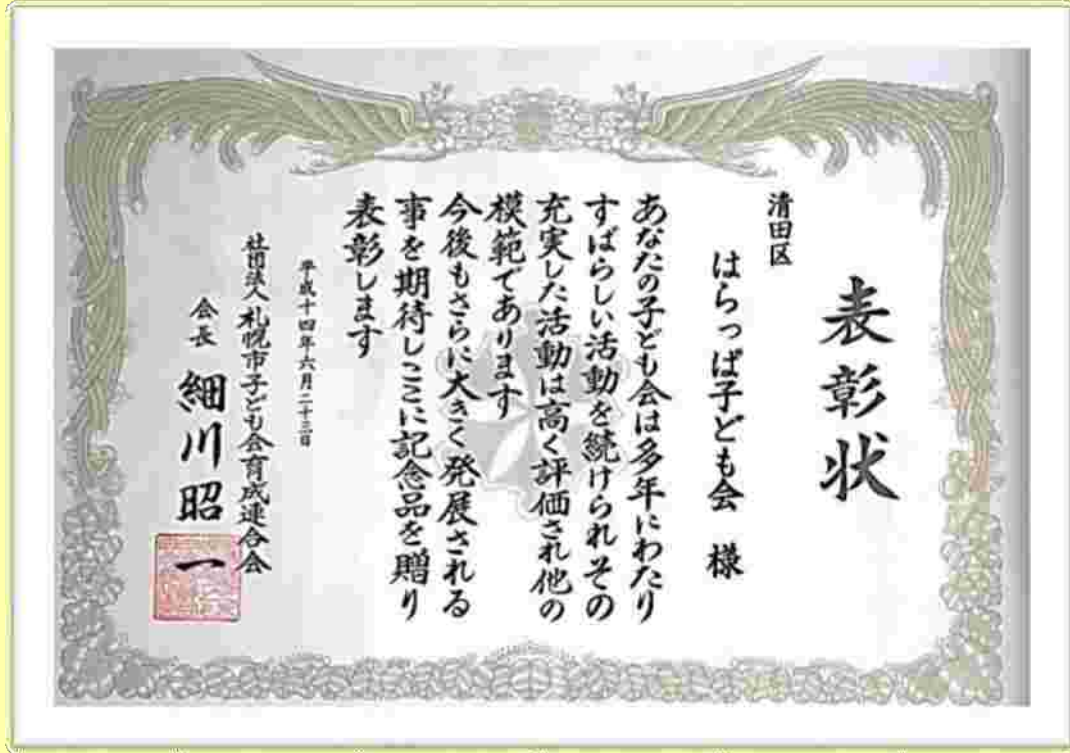 表彰状
清田区
はらっぱ子ども会 様
あなたの子ども会は多年にわたり
すばらしい活動を続けられその
充実した活動は高く評価され他の
模範であります
今後もさらに大きく発展される
事を期待しここに記念品を贈り
表彰します
平成十四年六月二十三日
社団法人 札幌市子ども会育成連合会
会長 細川昭一